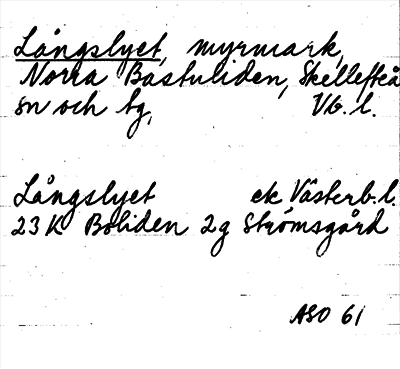 Långslyet, myrmark,
Norra Bastuliden, Skellefteå
sn och tg, Vb. l.
Långslyet ek Västerb. l.
23K Boliden 2g Strömsgård
ASO 61